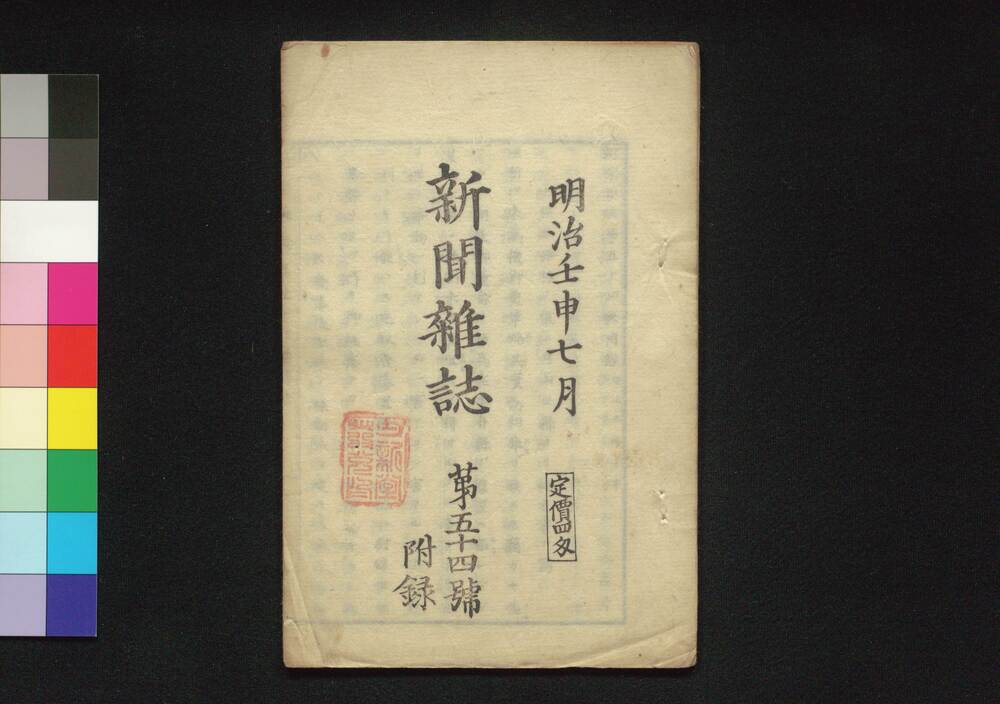 明治壬申七月
定價四匁
新聞雜誌
第五十四號
附録